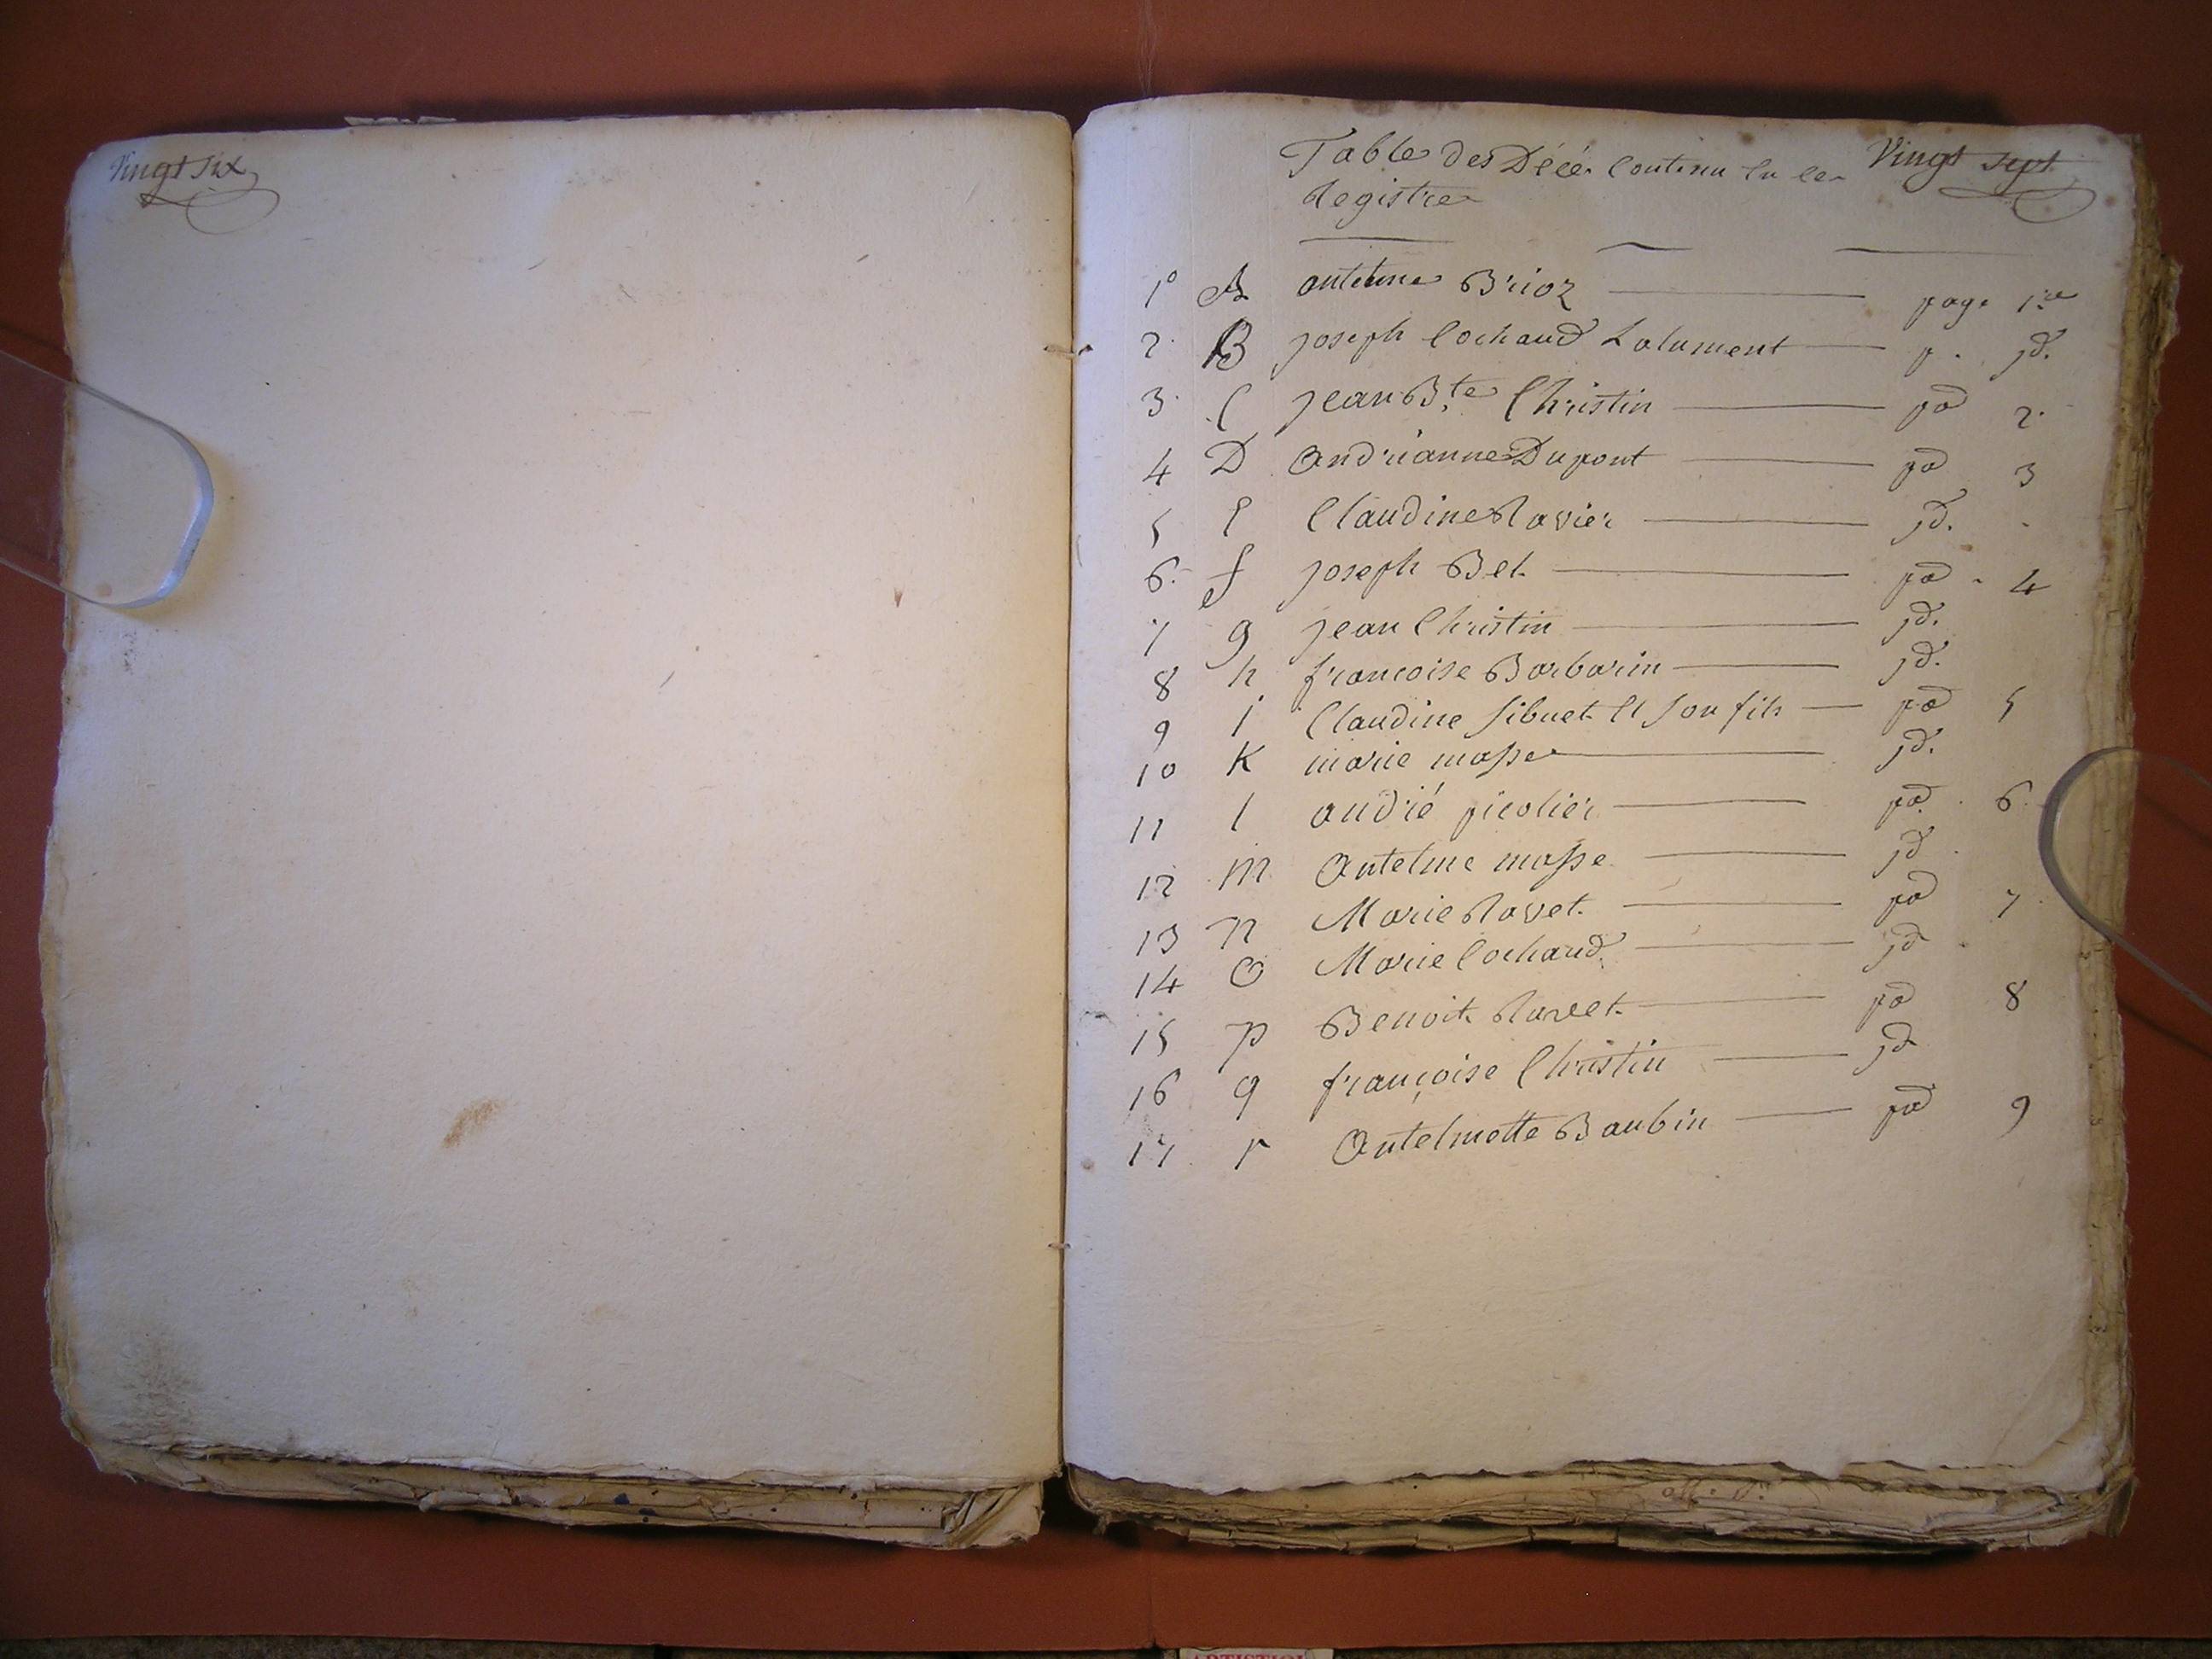 Vingt six
Table des Décé. Contenu En ce
Vingt sept
Registre
1º A antelme Brioz page 1.re
2. B joseph Cochaud Lalument p. jd.
3. C jean B.te Christin pa 2.
4 D andrianne Dupont pa 3
5 E Claudine Ravier jd.
6. f joseph Bel pa 4
7 g jean Christin jd.
8 h francoise Barbarin jd.
9 j Claudine Sibuet Et Son fils pa 5
10 K marie masse jd.
11 l andrié picolier pa. 6.
12 M Antelme masse jd.
13 n Marie Ravet pa 7.
14 O Marie Cochaud jd
15 p Benoit Ravet pa 8
16 q françoise Christin jd
17 r Antelmette Baubin pa 9
ARTISTIQU